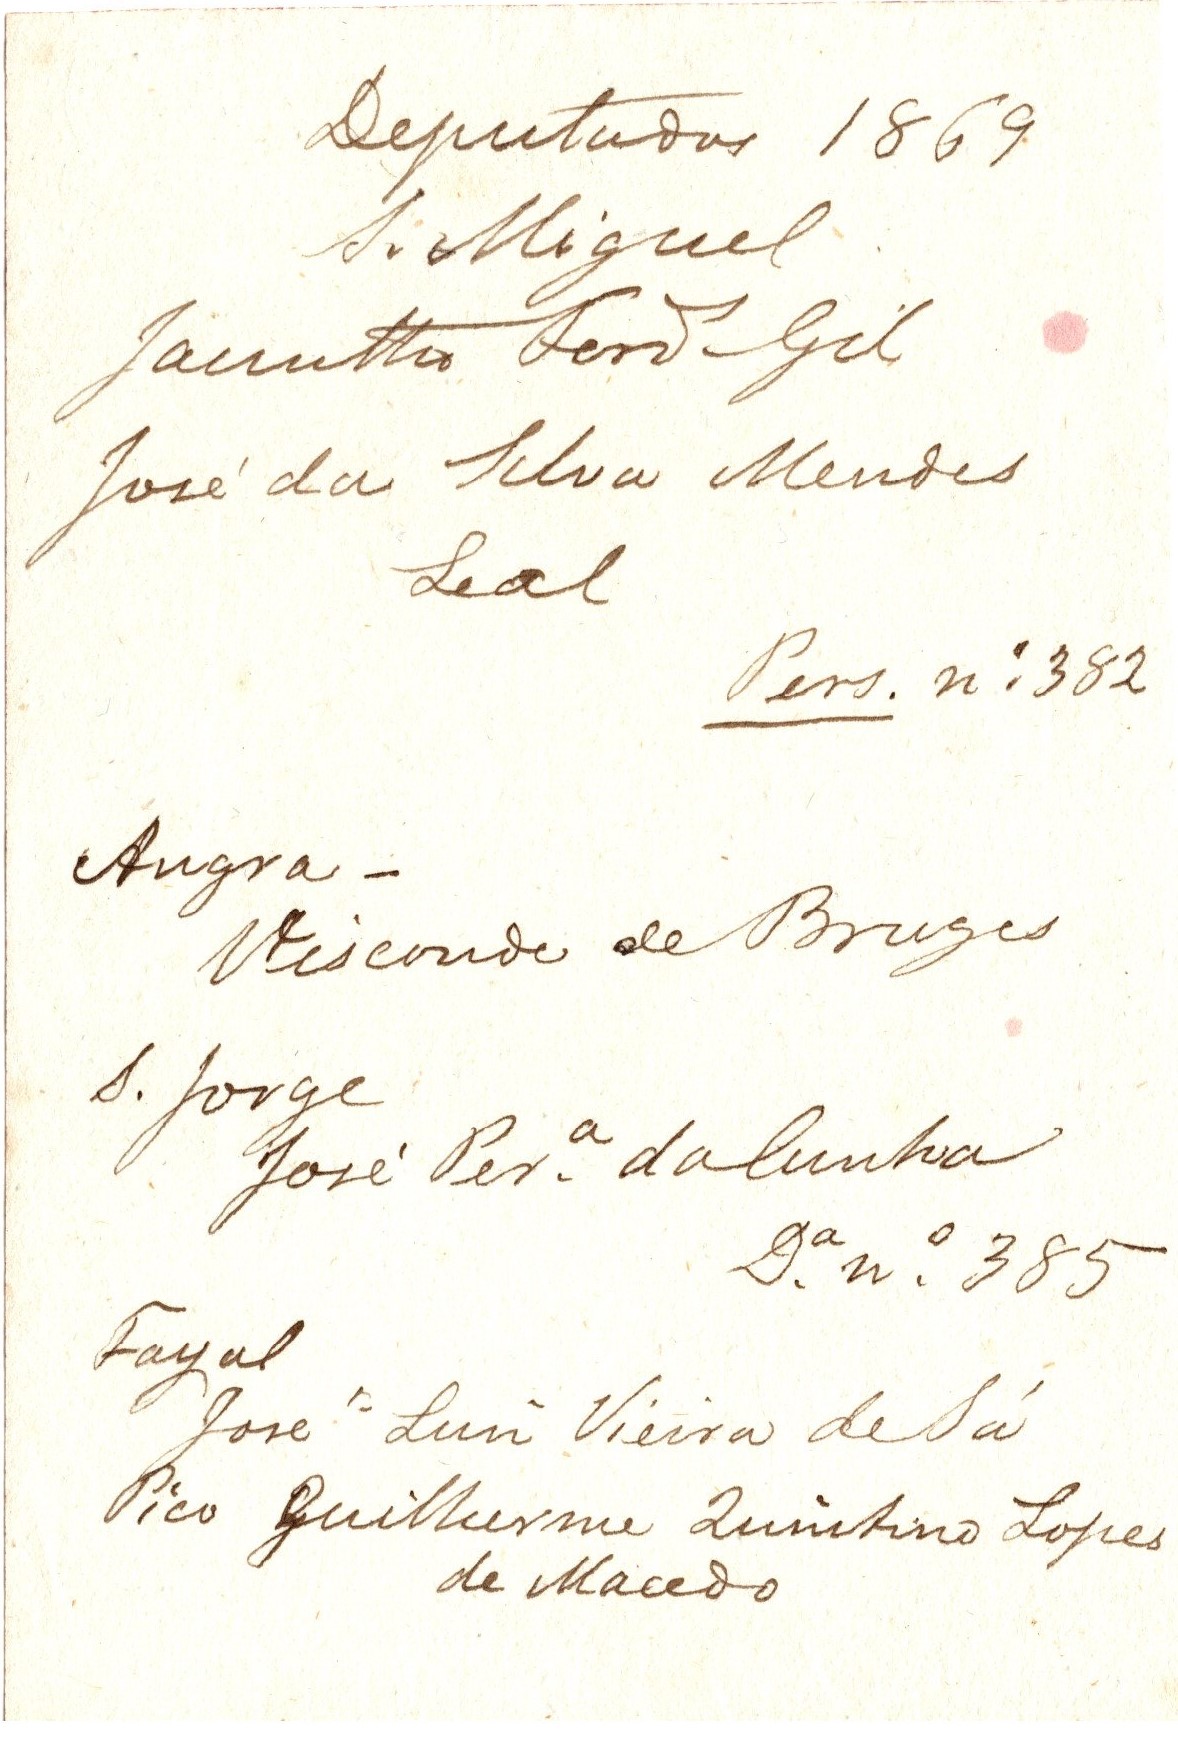 Deputados 1869
S. Miguel
Jacintho Ferd. Gil
José da Silva Mendes
Leal
Pers. nº 382
Angra -
Visconde de Bruges
S. Jorge
José Per.ª da Cunha
D.ª n.º 385
Fayal
José Luiz Vieira de Sá
Pico Guilherme Quintino Lopes
de Macedo